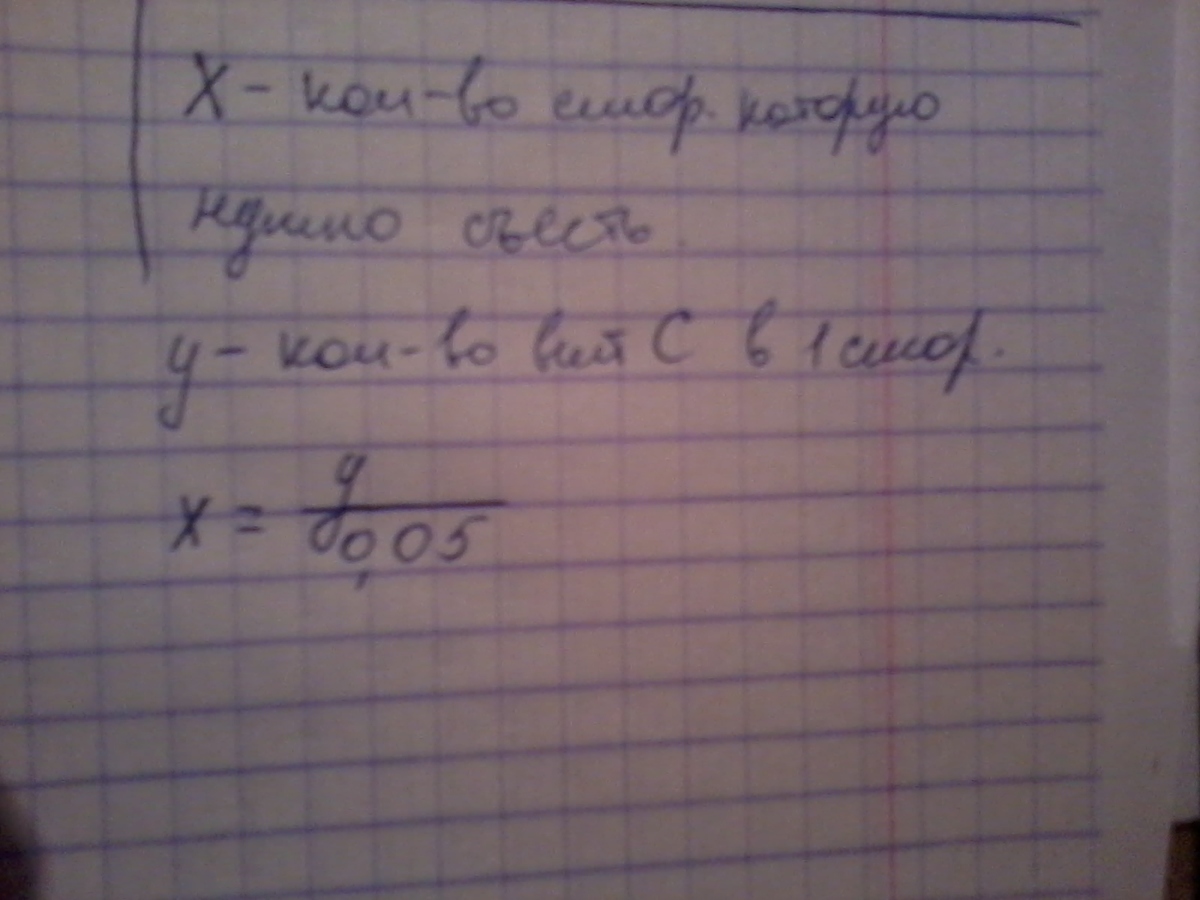 X - кол-во смор. которую
нужно съесть.
y - кол-во вит С в 1 смор.
x = y / 0,05